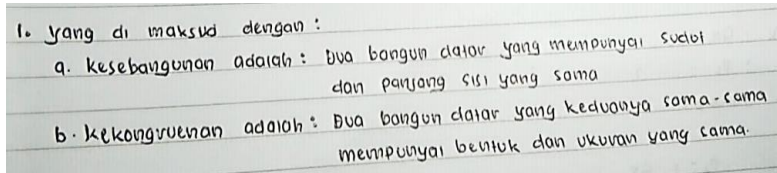 1. Yang di maksud dengan :
a. Kesebangunan adalah : Dua bangun datar yang mempunyai sudut
dan panjang sisi yang sama
b. Kekongruenan adalah : Dua bangun datar yang keduanya sama-sama
mempunyai bentuk dan ukuran yang sama.